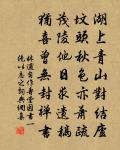 湖上青山對結廬
墳頭秋色亦蕭疏
茂陵他日求遺稿
猶喜曾無封禪書
林逋自作壽堂因書一
絕以志之詞典網集